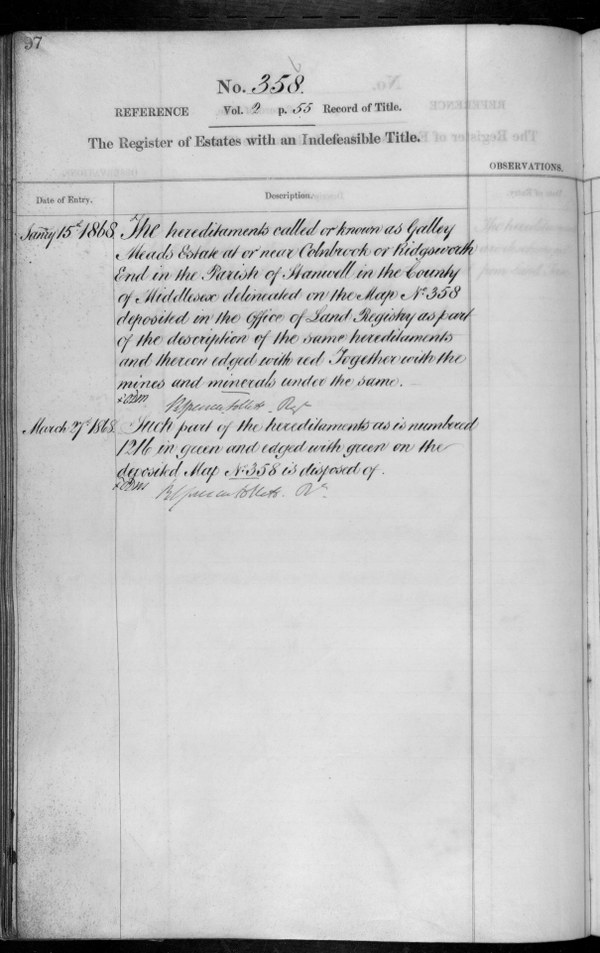 37
No. 358.
REFERENCE Vol. 2 p. 55 Record of Title.
The Register of Estates with an Indefeasible Title.
OBSERVATIONS.
Date of Entry. Description.
Jany 15th 1868. The hereditaments called or known as Galley
Meads Estate at or near Colnbrook or Ridgsworth
End in the Parish of Stanwell in the County
of Middlesex delineated on the Map No. 358
deposited in the Office of Land Registry as part
of the description of the same hereditaments
and thereon edged with red Together with the
mines and minerals under the same.
Regr
March 27th 1868. Such part of the hereditaments as is numbered
1216 in green and edged with green on the
deposited Map No. 358 is disposed of.